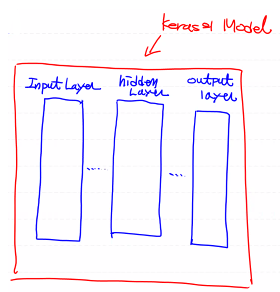 Keras의 Model
Input Layer
hidden
Layer
output
layer